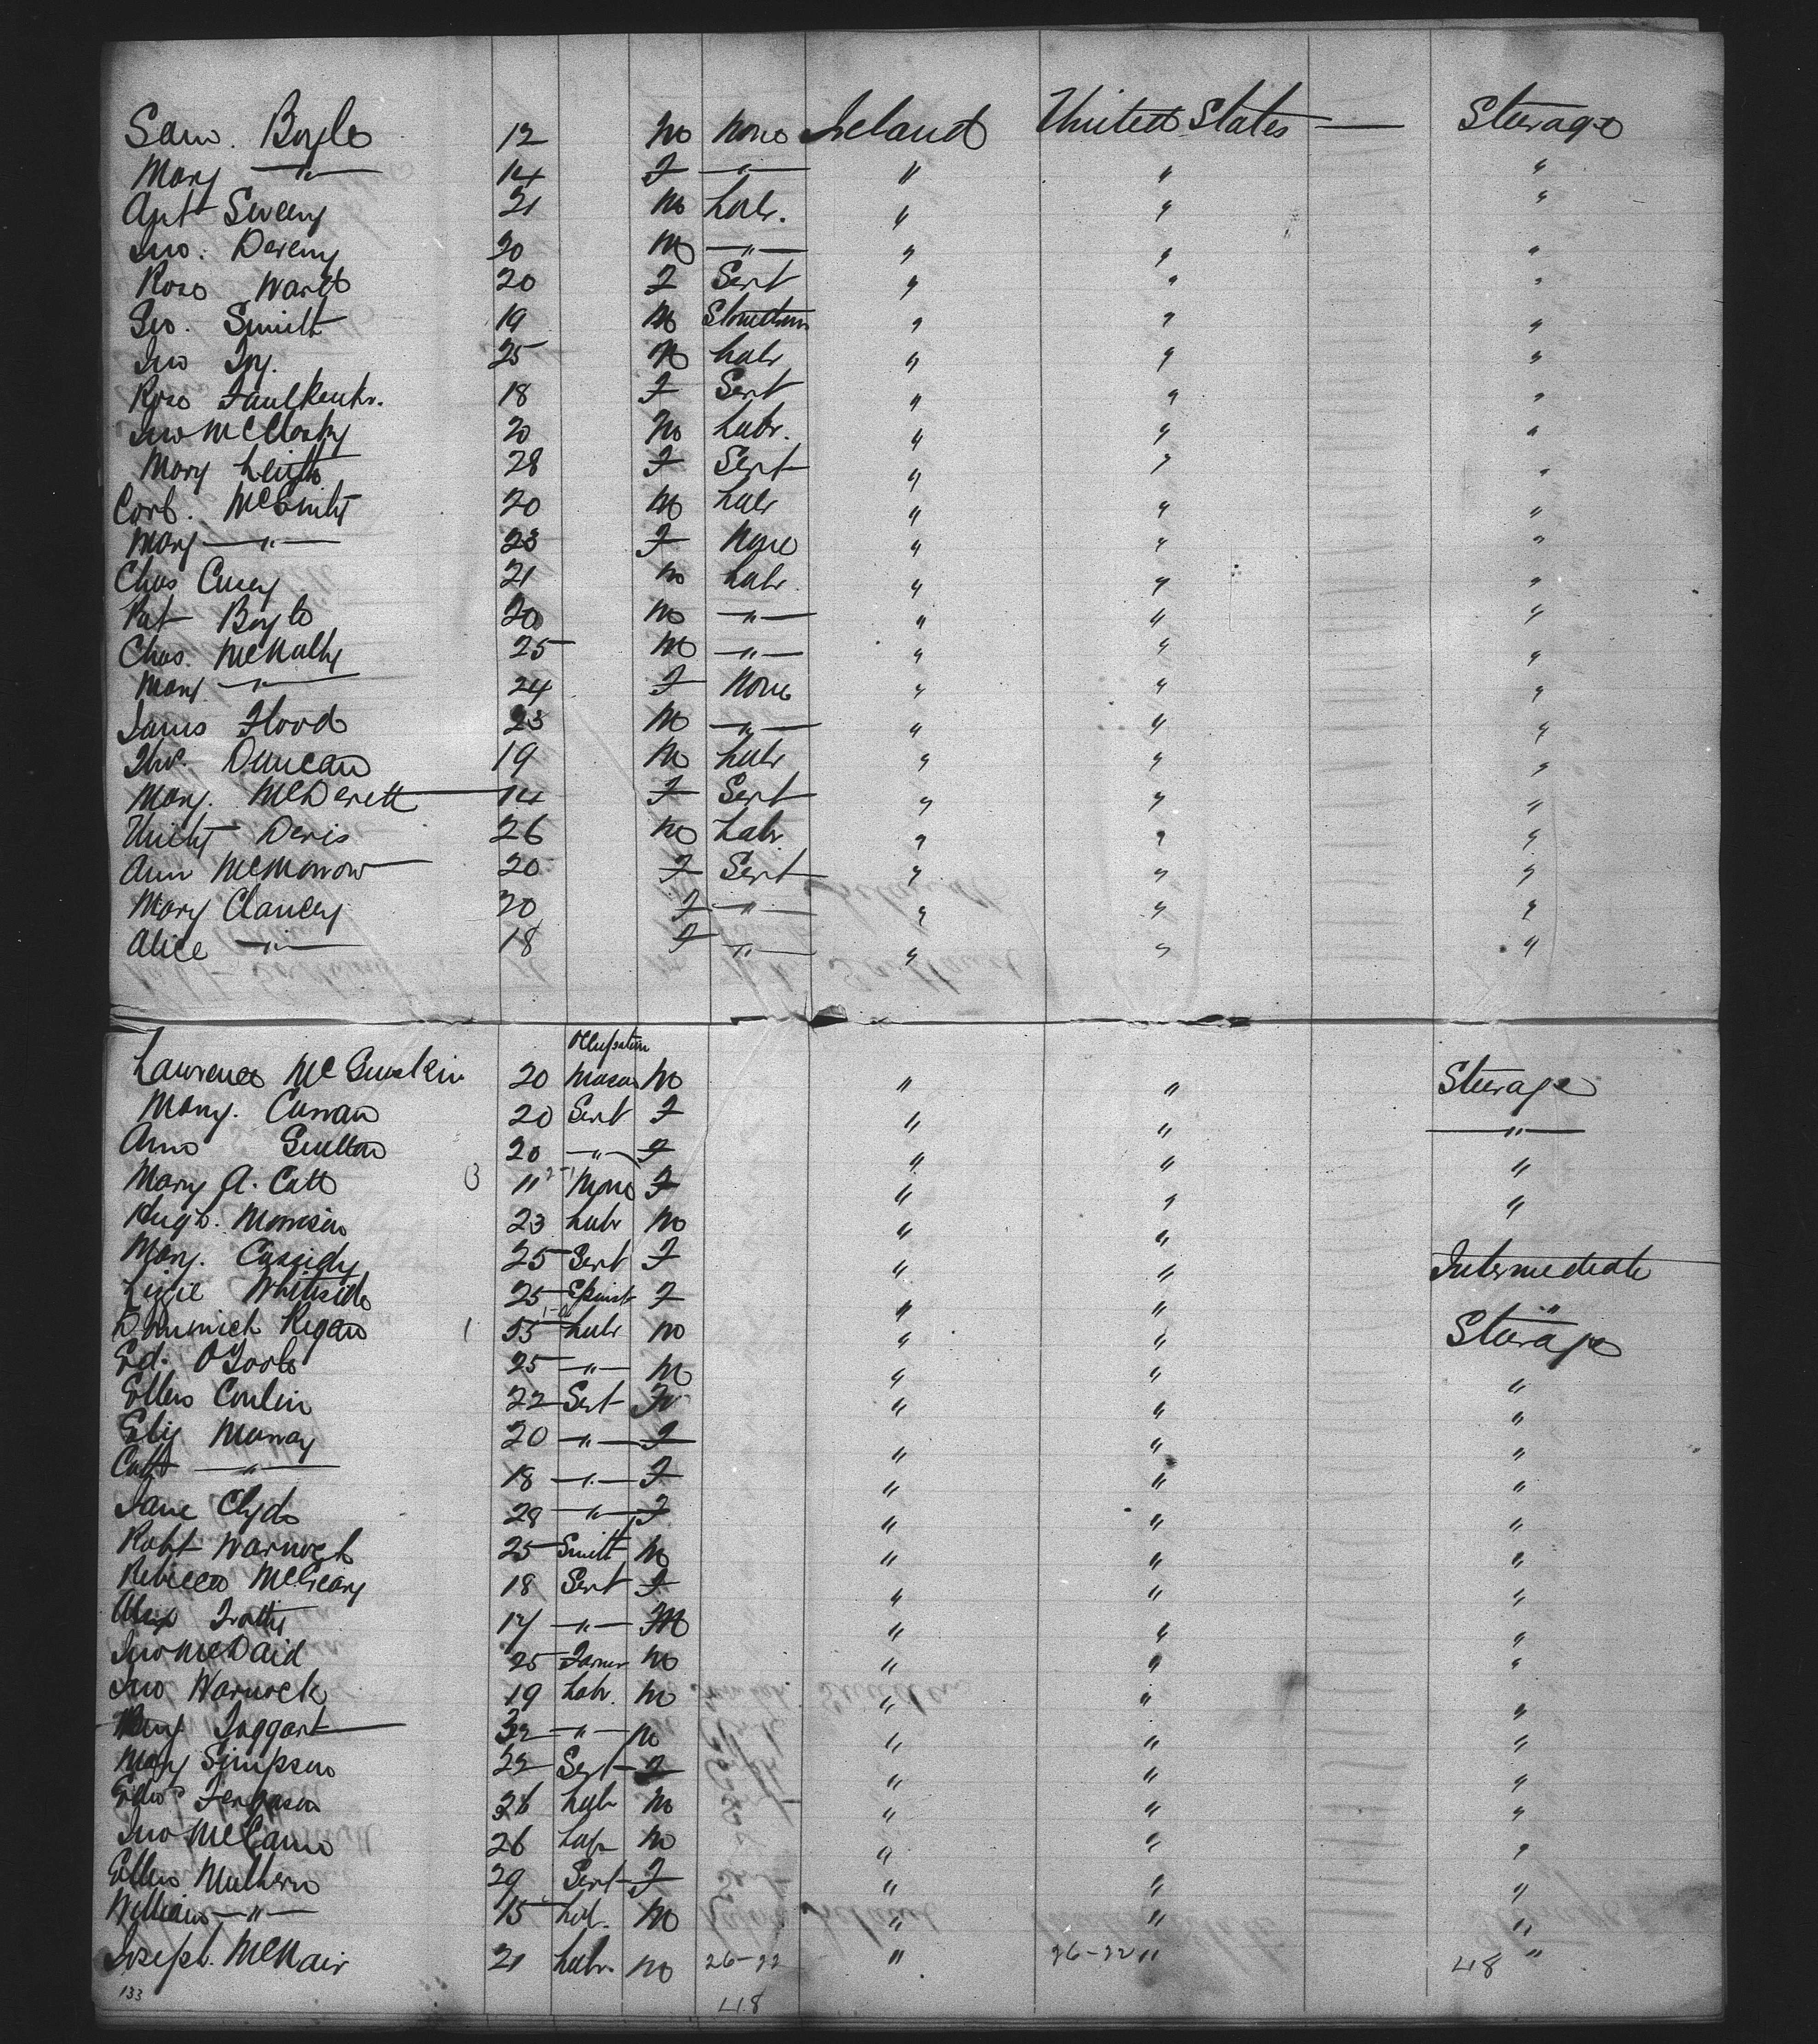 Sam. Boyle 12 M None Ireland United States — Steerage
Mary —"— 14 F —"— " " "
Sweeny 21 M Labr. " " "
Jno. Deveny 20 M —"— " " "
Rose Ward 20 F Sert " " "
Geo. Smith 19 M " " "
Jno 25 M Labr " " "
Rose 18 F Sert " " "
Jno McClosky 20 M Labr. " " "
Mary 28 F Sert " " "
20 M Labr " " "
Mary —"— 23 F None " " "
Chas 21 M Labr. " " "
Pat Boyle 20 M —"— " " "
Chas. McNulty 25 M —"— " " "
Mary —"— 24 F None " " "
James Flood 23 M —"— " " "
Duncan 19 M Labr " " "
Mary. 14 F Sert " " "
26 M Labr " " "
Ann McMorrow 20 F Sert " " "
Mary Clancey 20 F —"— " " "
Alice —"— 18 F —"— " " "
Occupation
Lawrence 20 Mason M " " Steerage
Mary. Curran 20 Sert F " " —"—
Ann 20 —"— F " " "
Mary A. 11 None F " " "
Hugh. Morrison 23 Labr M " "
Mary. Cassidy 25 Sert F " " Intermediate
Lizzie Whiteside 25 F " " "
Dominick Regan 55 Labr M " " Steerage
Ed. O'Toole 25 —"— M " " "
Ellen Conlin 22 Sert F " " "
Murray 20 —"— F " " "
Cath —"— 18 —"— F " " "
Jane Clyde 28 —"— F " " "
Robt Warnock 25 Smith M " " "
Rebecca McCreary 18 Sert F " " "
Alex 17 —"— M " " "
Jno McDaid 25 Farmer M " " "
Jno Warnock 19 Labr. M " " "
Benj Taggart 32 —"— M " " "
Mary Simpson 22 Sert F " " "
Edwd Ferguson 26 Labr M " " "
Jno McCann 26 Labr M " " "
Ellen Mulhern 29 Sert F " " "
William —"— 15 M " " "
Joseph. McNair 21 Labr. M 26-22 " 26-22 " 48 "
133 48